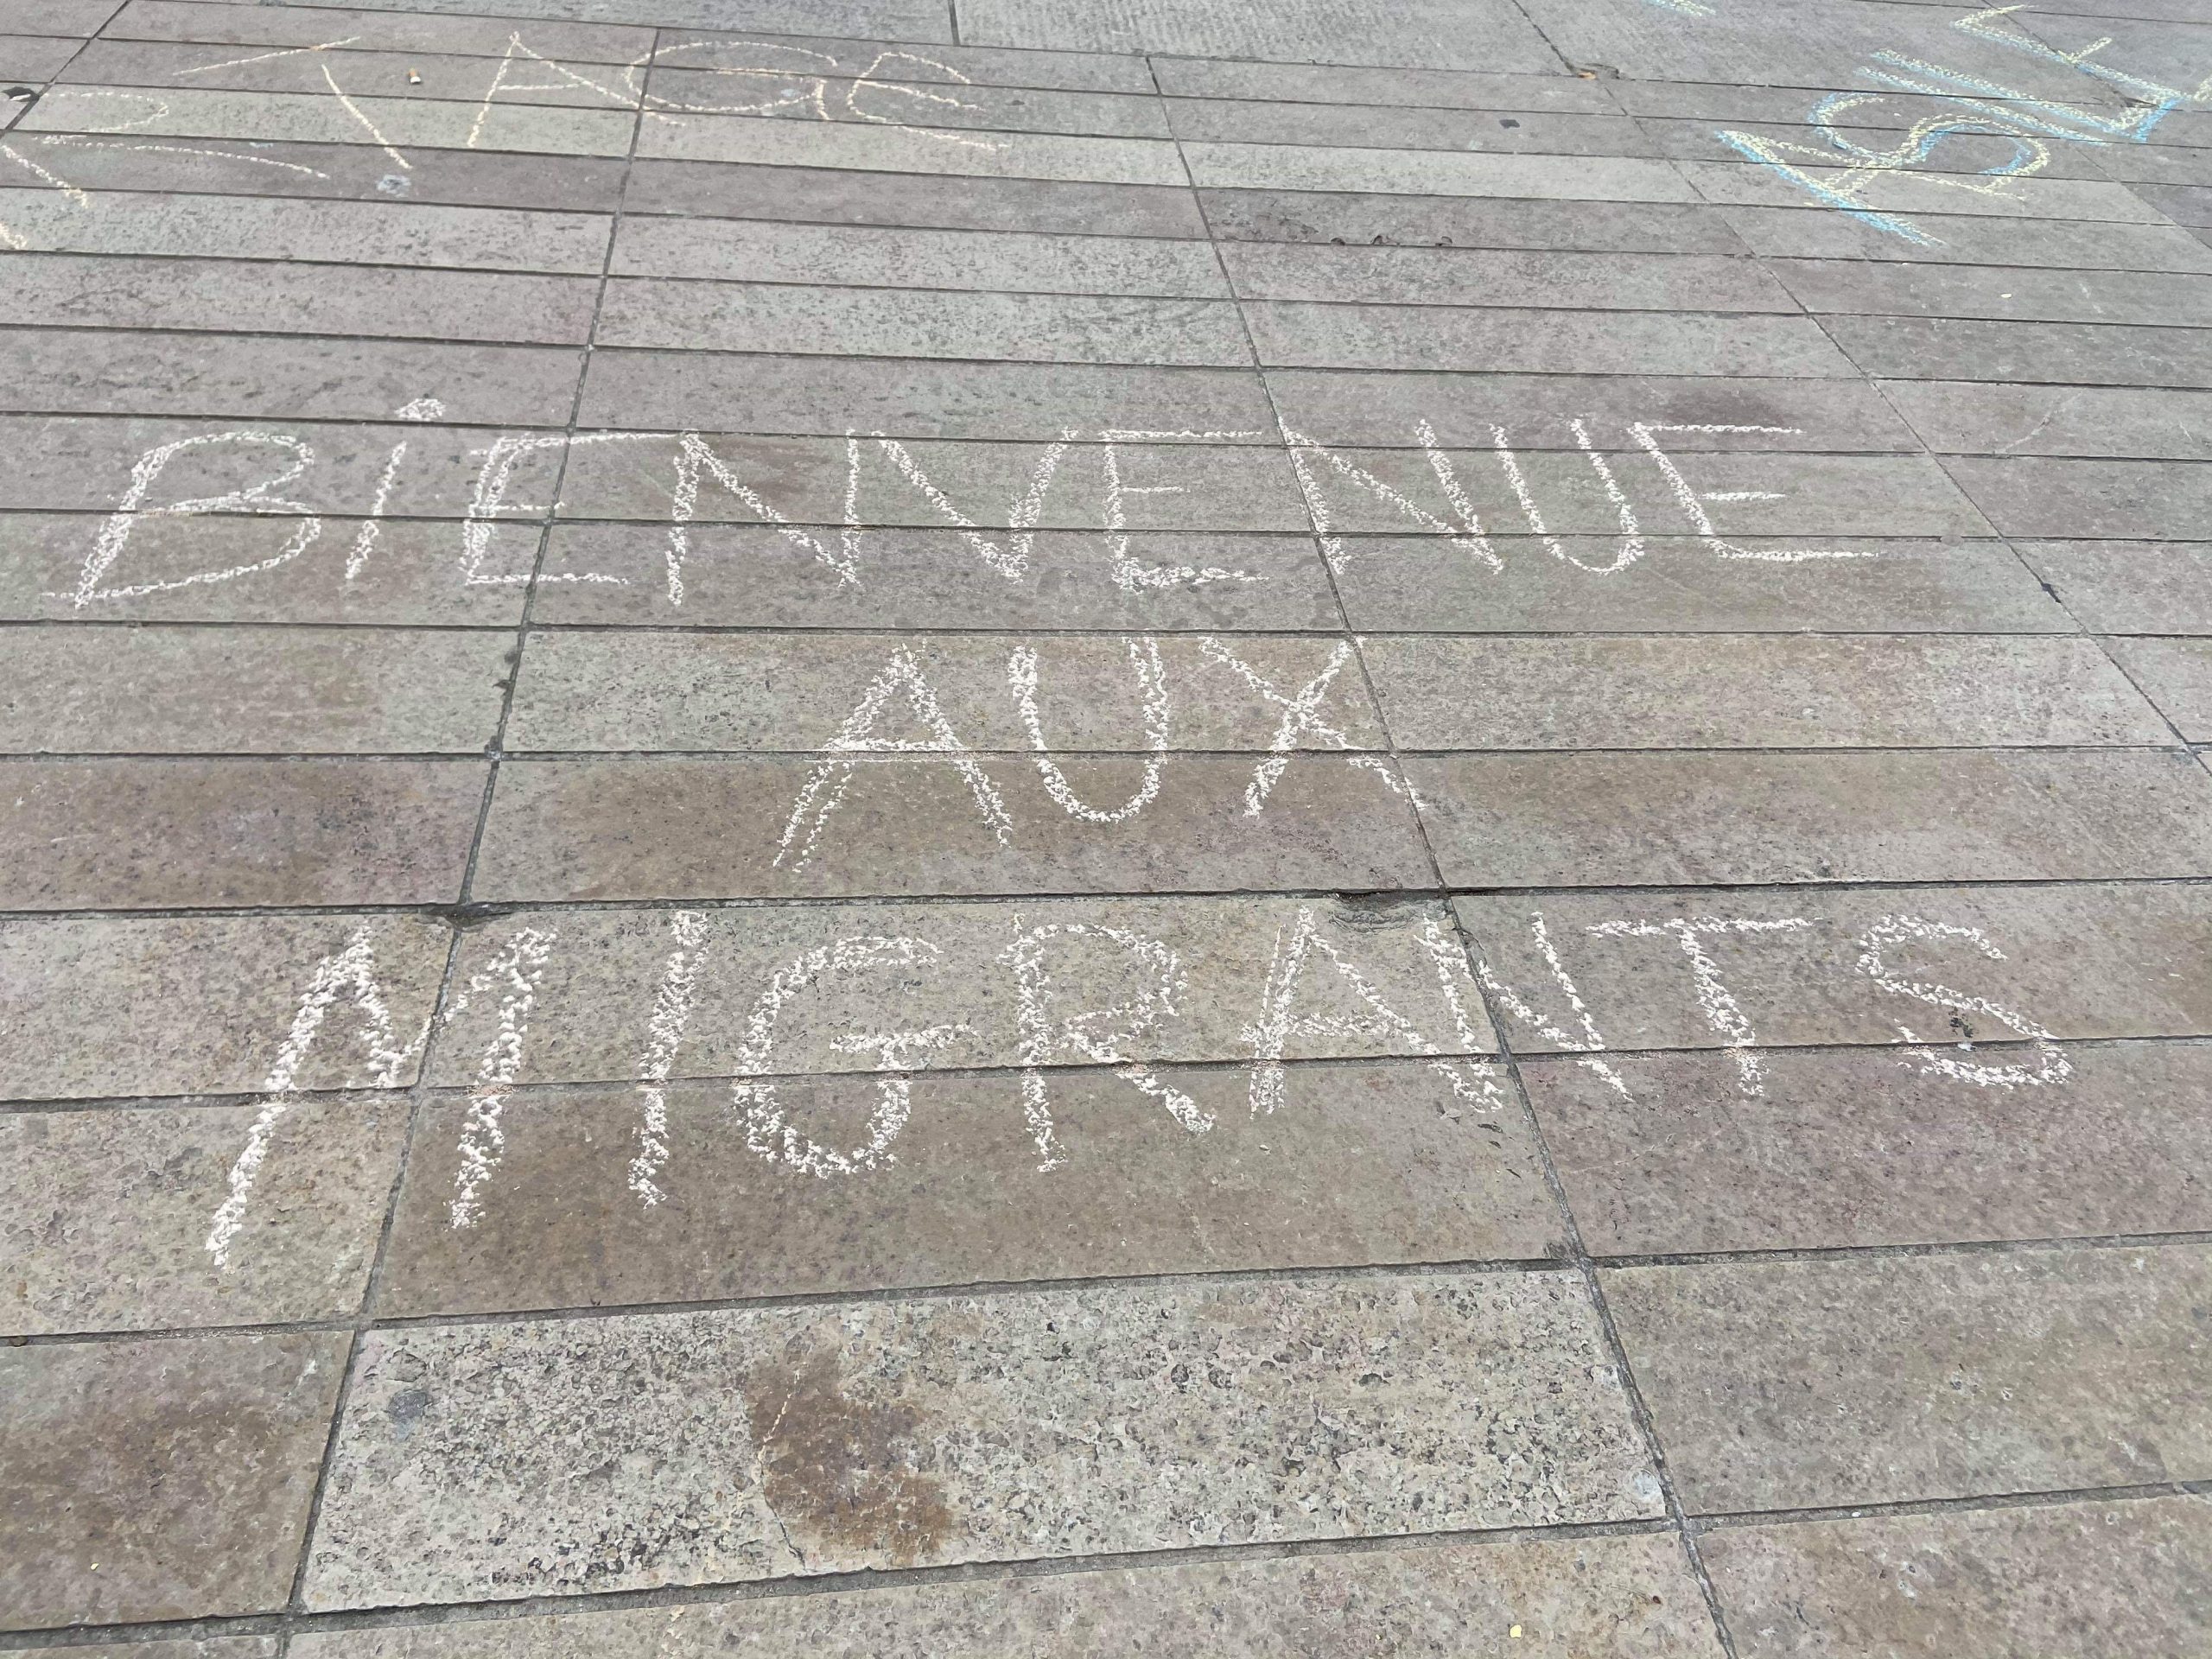 ASILE
BIENVENUE
AUX
MIGRANTS